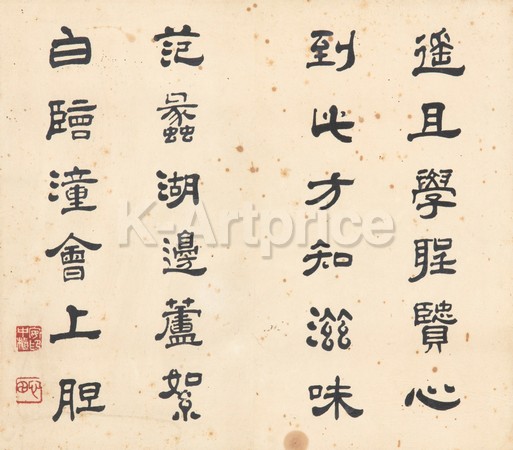 遙且學聖賢心
到此方知滋味
范蠡湖邊蘆絮
白臨潼會上胆
K-Artprice